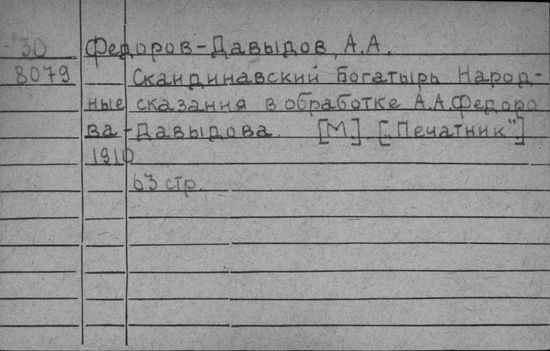 30 Федоров-Давыдов, А.А.
8079 Скандинавский богатырь Народ-
ные сказания в обработке А.А.Федоро
ва-Давыдова. [М] [„Печатник"]
1910
63 стр.